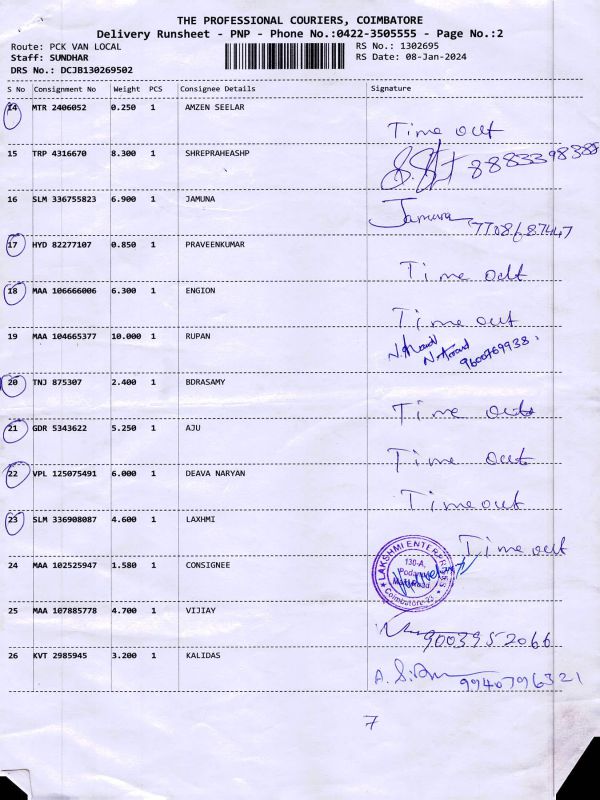 THE PROFESSIONAL COURIERS, COIMBATORE
Delivery Runsheet - PNP - Phone No.:0422-3505555 - Page No.:2
Route: PCK VAN LOCAL RS No.: 1302695
Staff: SUNDHAR RS Date: 08-Jan-2024
DRS No.: DCJB130269502
S No Consignment No Weight PCS Consignee Details Signature
14 MTR 2406052 0.250 1 AMZEN SEELAR
Time out
15 TRP 4316670 8.300 1 SHREPRAHEASHP
8883398388
16 SLM 336755823 6.900 1 JAMUNA
Jamuna 7708687447
17 HYD 82277107 0.850 1 PRAVEENKUMAR
Time out
18 MAA 106666006 6.300 1 ENGION
Time out
19 MAA 104665377 10.000 1 RUPAN
9600769938
20 TNJ 875307 2.400 1 BDRASAMY
Time out
21 GDR 5343622 5.250 1 AJU
Time out
22 VPL 125075491 6.000 1 DEAVA NARYAN
Time out
23 SLM 336908087 4.600 1 LAXHMI
Time out
24 MAA 102525947 1.580 1 CONSIGNEE
LAKSHMI ENTERPRISES
130-A,
Coimbatore-23
25 MAA 107885778 4.700 1 VIJIAY
9003952066
26 KVT 2985945 3.200 1 KALIDAS
9940796321
7